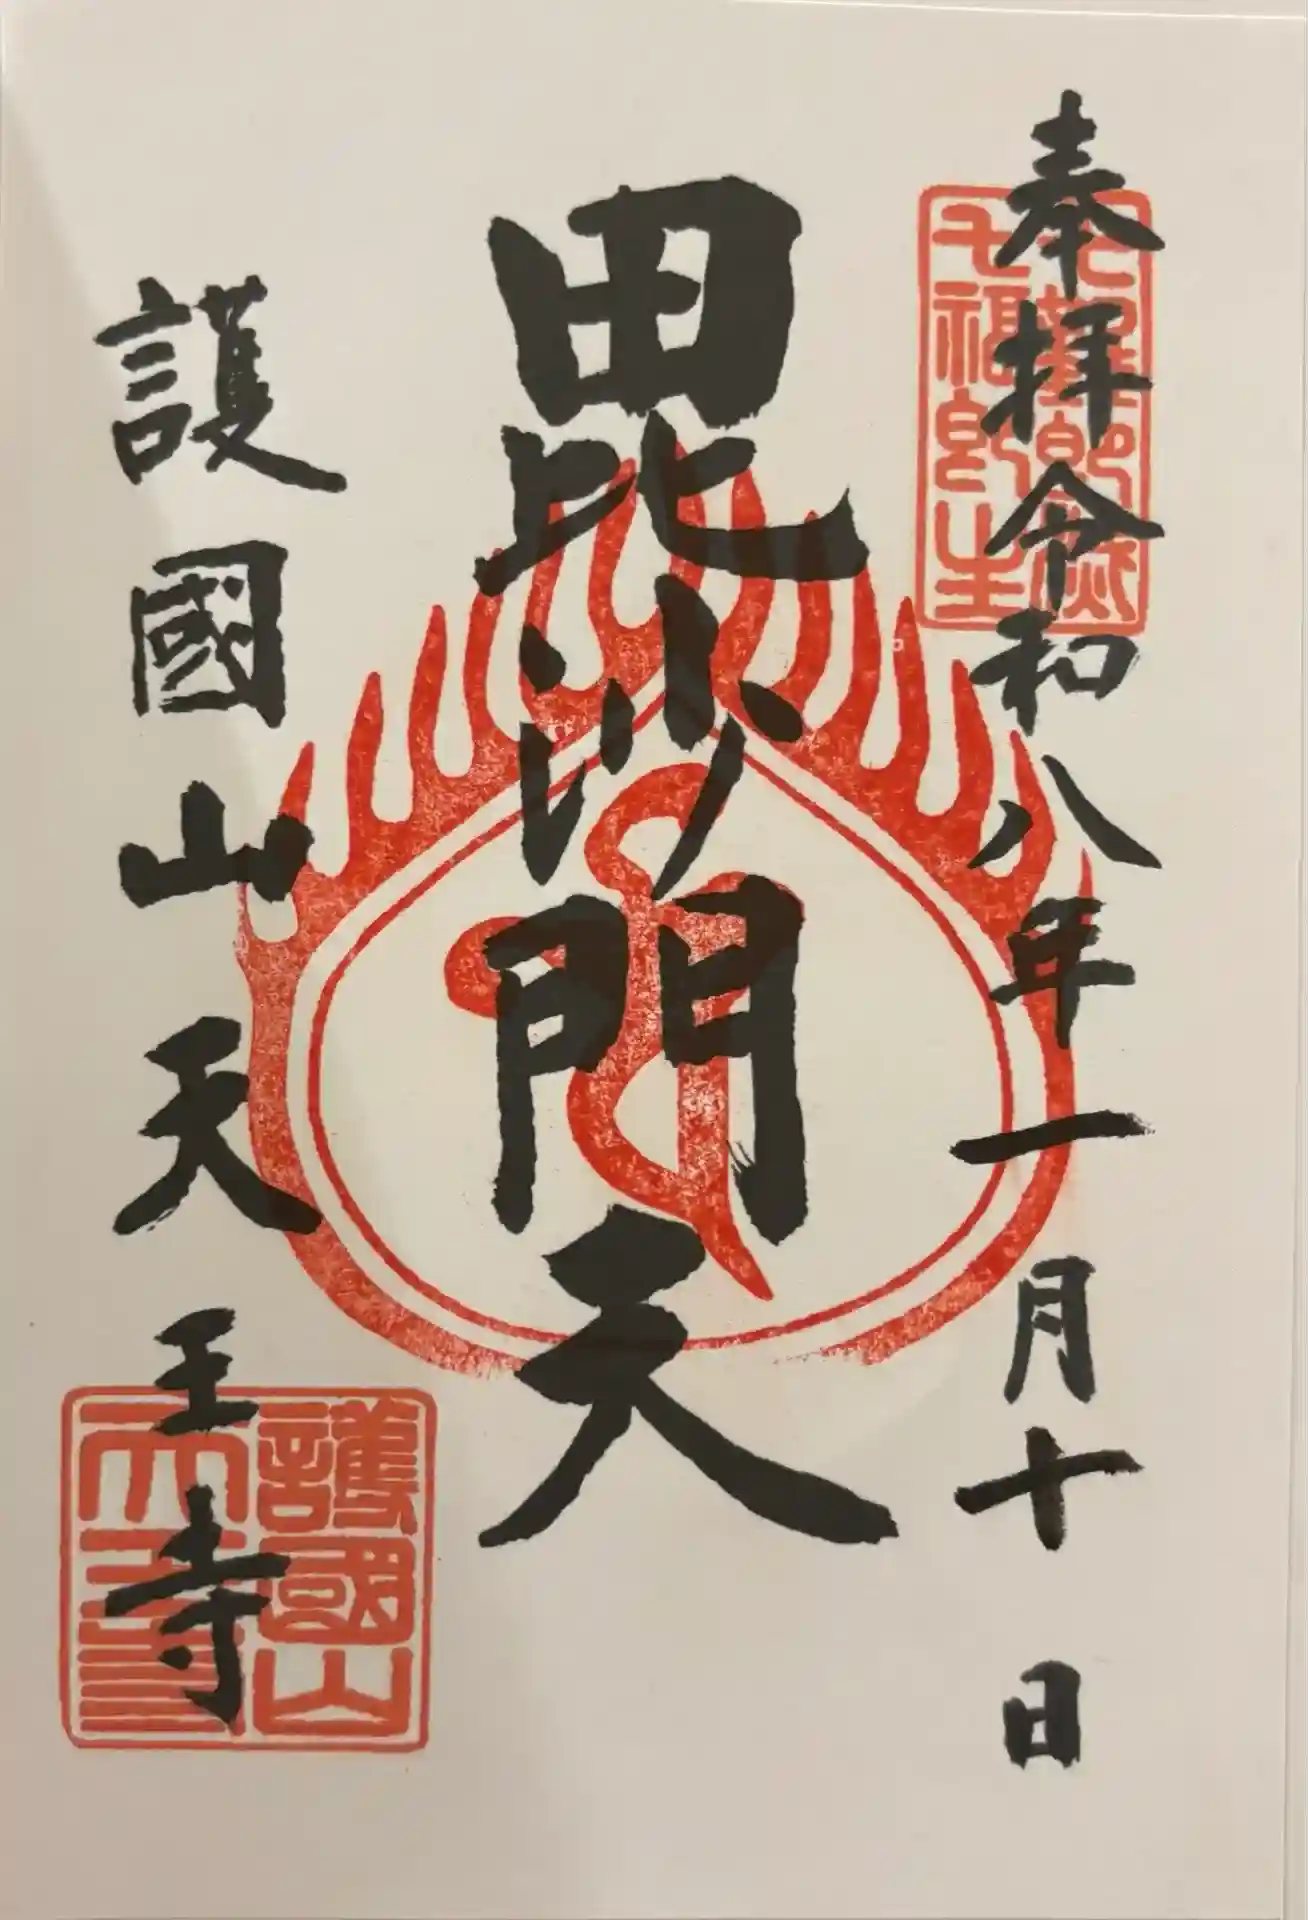 奉拝令和八年一月十日
毘沙門天
護國山天王寺
護國山
天王寺